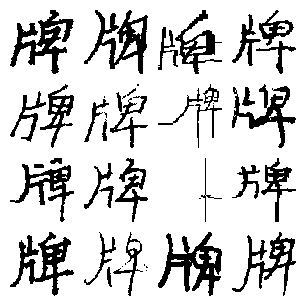 牌牌牌牌
牌牌牌牌
牌牌牌
牌牌牌牌